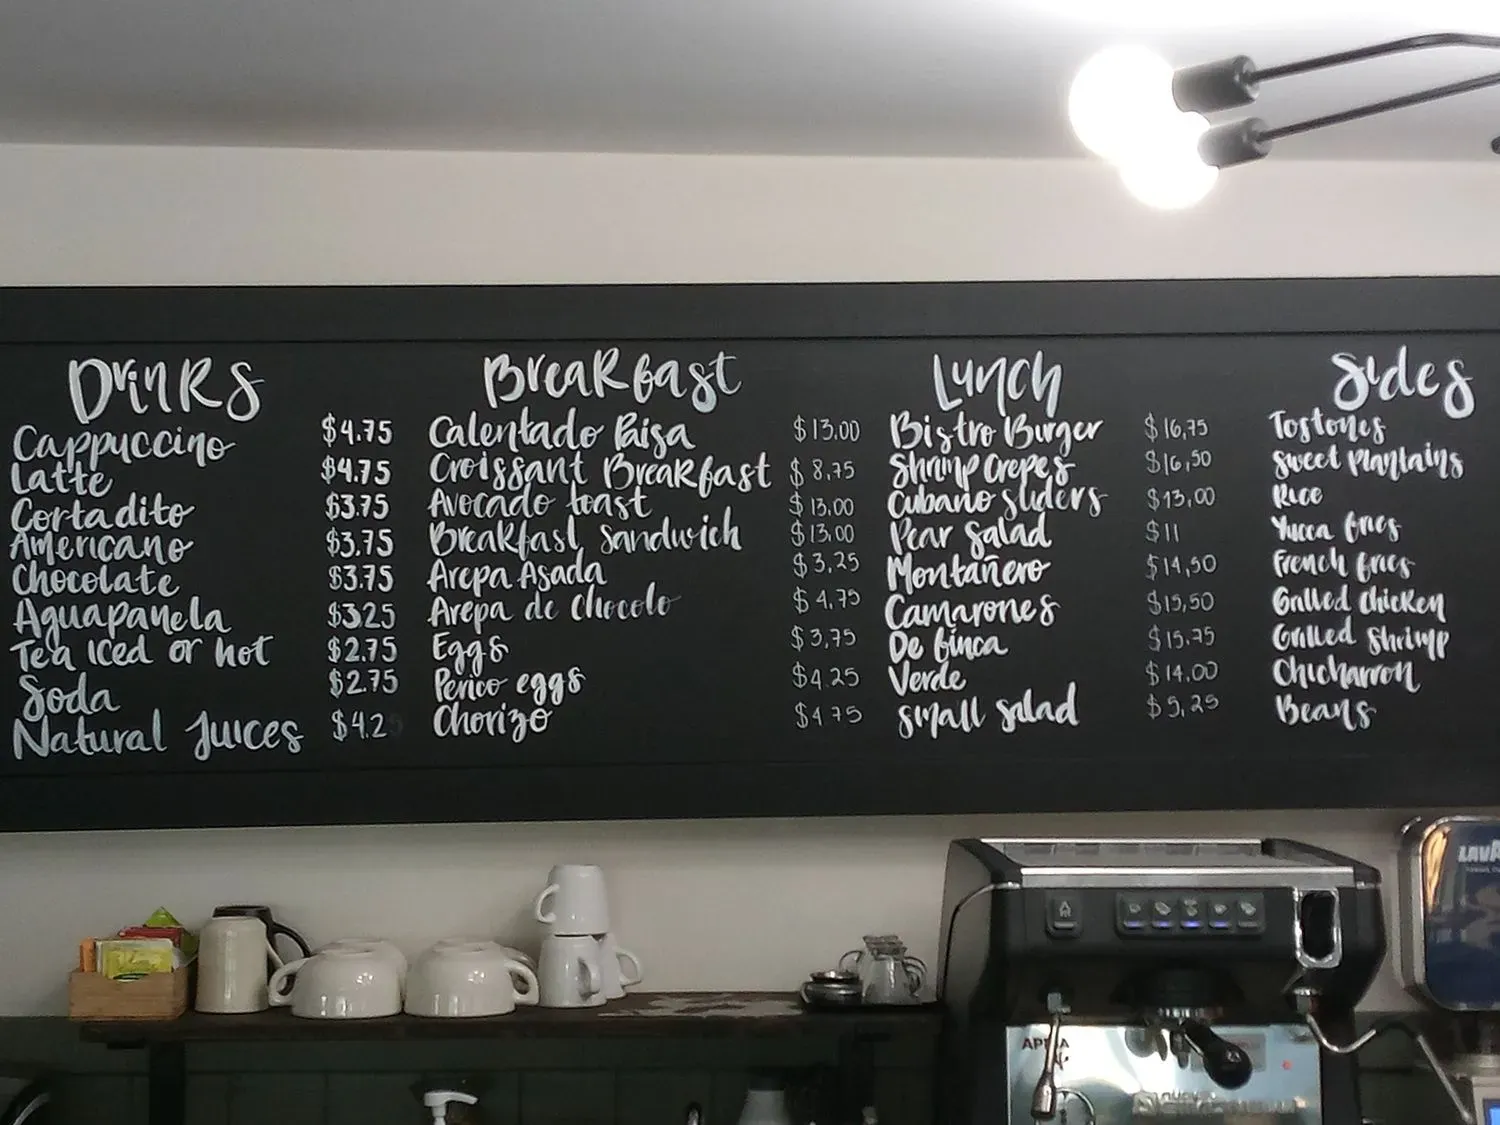 Drinks
Cappuccino $4.75
Latte $4.75
Cortadito $3.75
Americano $3.75
Chocolate $3.75
Aguapanela $325
Tea iced or hot $2.75
Soda $2.75
Natural Juices $4.2
Breakfast
Calentado Paisa $13,00
Croissant Breakfast $8,75
Avocado toast $13,00
Breakfast Sandwich $13,00
Arepa Asada $3,25
Arepa de chocolo $4,75
Eggs $3,75
Perico eggs $4.25
Chorizo $4 75
Lunch
Bistro Burger $16,75
Shrimp crepes $16,50
Cubano sliders $13,00
Pear Salad $11
Montañero $14,50
Camarones $15,50
De finca $15.75
Verde $14.00
Small Salad $5,25
Sides
Tostones
Sweet Plantains
Rice
Yucca fries
French fries
Grilled Chicken
Grilled Shrimp
Chicharron
Beans